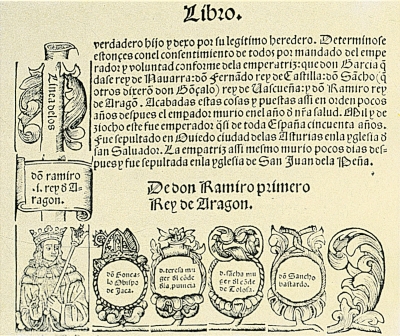 Libro.
verdadero hijo y dexo por su legitimo heredero. Determinose
estonçes con el consentimiento de todos por mandado del empe
rador y voluntad conforme dela emperatriz: que don Garcia q̃
dase rey de Nauarra: dõ Fernãdo rey de Castilla: dõ Sãcho (q̃
otros dixerõ don Gõçalo) rey de Uascueña: y dõ Ramiro rey
de Aragõ. Acabadas estas cosas y puestas assi en orden pocos
años despues el empador murio en el año ð nr̃a salud. Mil y de
ziocho este fue emperador q̃si de toda España cincuenta años.
Fue sepultado en Ouiedo ciudad de las Asturias en la yglesia ð
san Saluador. La empatriz assi mesmo murio pocos dias des-
pues y fue sepultada en la yglesia de San Juan de la Peña.
Linea delos
dõ ramiro
.i. rey ð A
ragon.
De don Ramiro primero
Rey de Aragon.
dõ Gonca
lo Obispo
de Jaca.
d. teresa mu
ger ðl cõde
ðla puincia
d. sãcha mu
ger ðl cõde
de Tolosa.
dõ Sancho
bastardo.